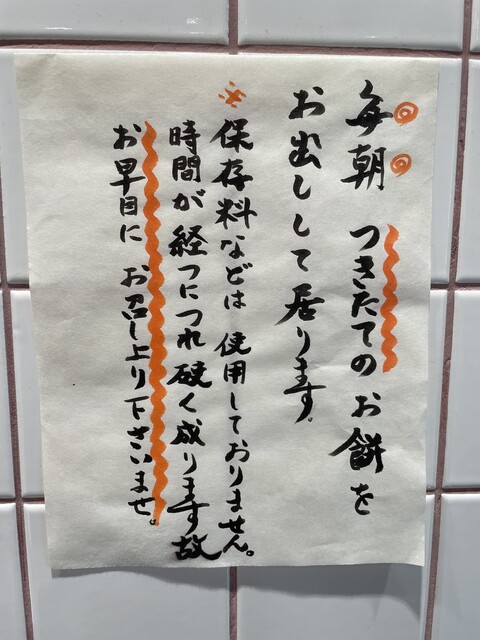 毎朝 つきたてのお餅を
お出しして居ります。
※保存料などは 使用しておりません。
時間が経つにつれ硬く成ります故
お早目に お召し上り下さいませ。